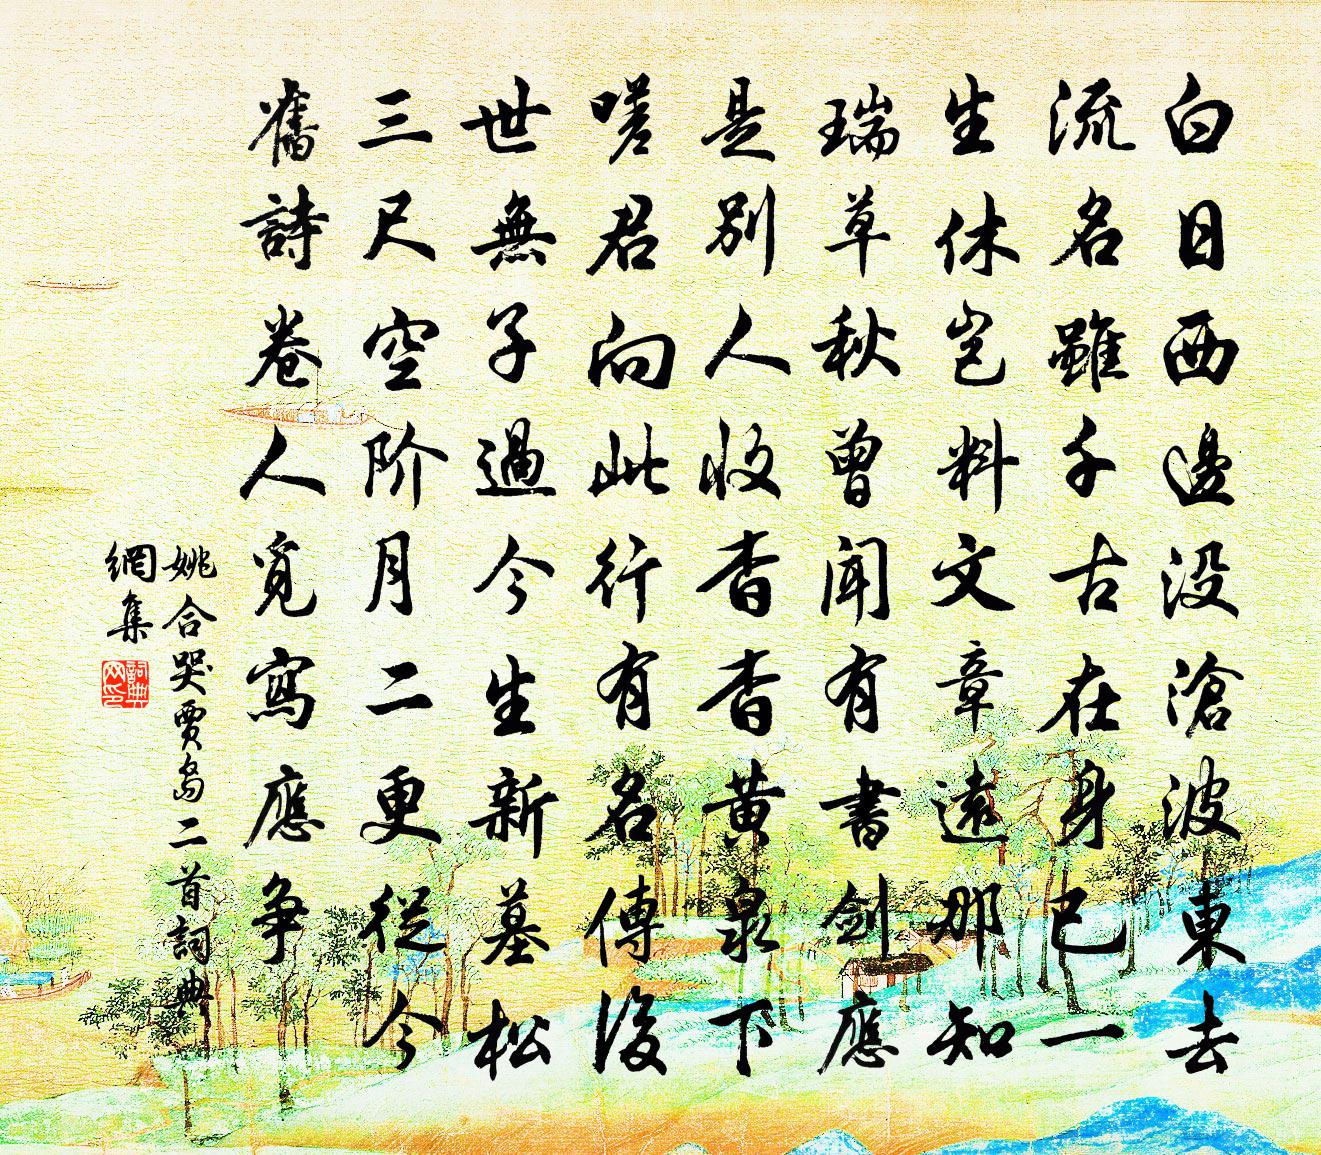 白日西邊没滄波東去
流名雖千古在身已一
生休豈料文章遠那知
瑞草秋曾聞有書劍應
是别人收杳杳黄泉下
嗟君向此行有名傳後
世無子過今生新墓松
三尺空阶月二更從今
舊詩卷人覓寫應争
姚合哭贾島二首詞典
網集
詞典网印